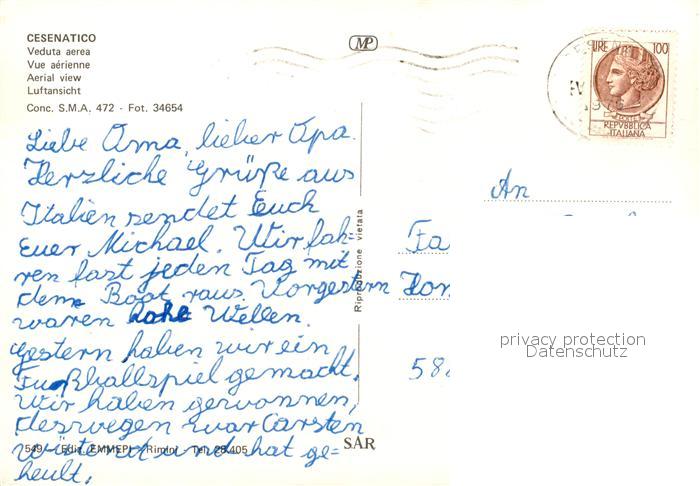 CESENATICO
Veduta aerea
Vue aérienne
Aerial view
Luftansicht
Conc. S.M.A. 472 - Fot. 34654
MP
LIRE 100
REPVBBLICA
ITALIANA
Liebe Oma, lieber Opa.
Herzliche Grüße aus
Italien sendet Euch
Euer Michael. Wir fah-
ren fast jeden Tag mit
dem Boot raus. Vorgestern
waren hohe Wellen.
Gestern haben wir ein
Fußballspiel gemacht.
Wir haben gewonnen,
deswegen war Carsten
wütend und hat ge-
heult.
Riproduzione vietata
An
Fa
58
privacy protection
Datenschutz
549 - Ediz. EMMEPI - Rimini - Tel. 28.405
SAR